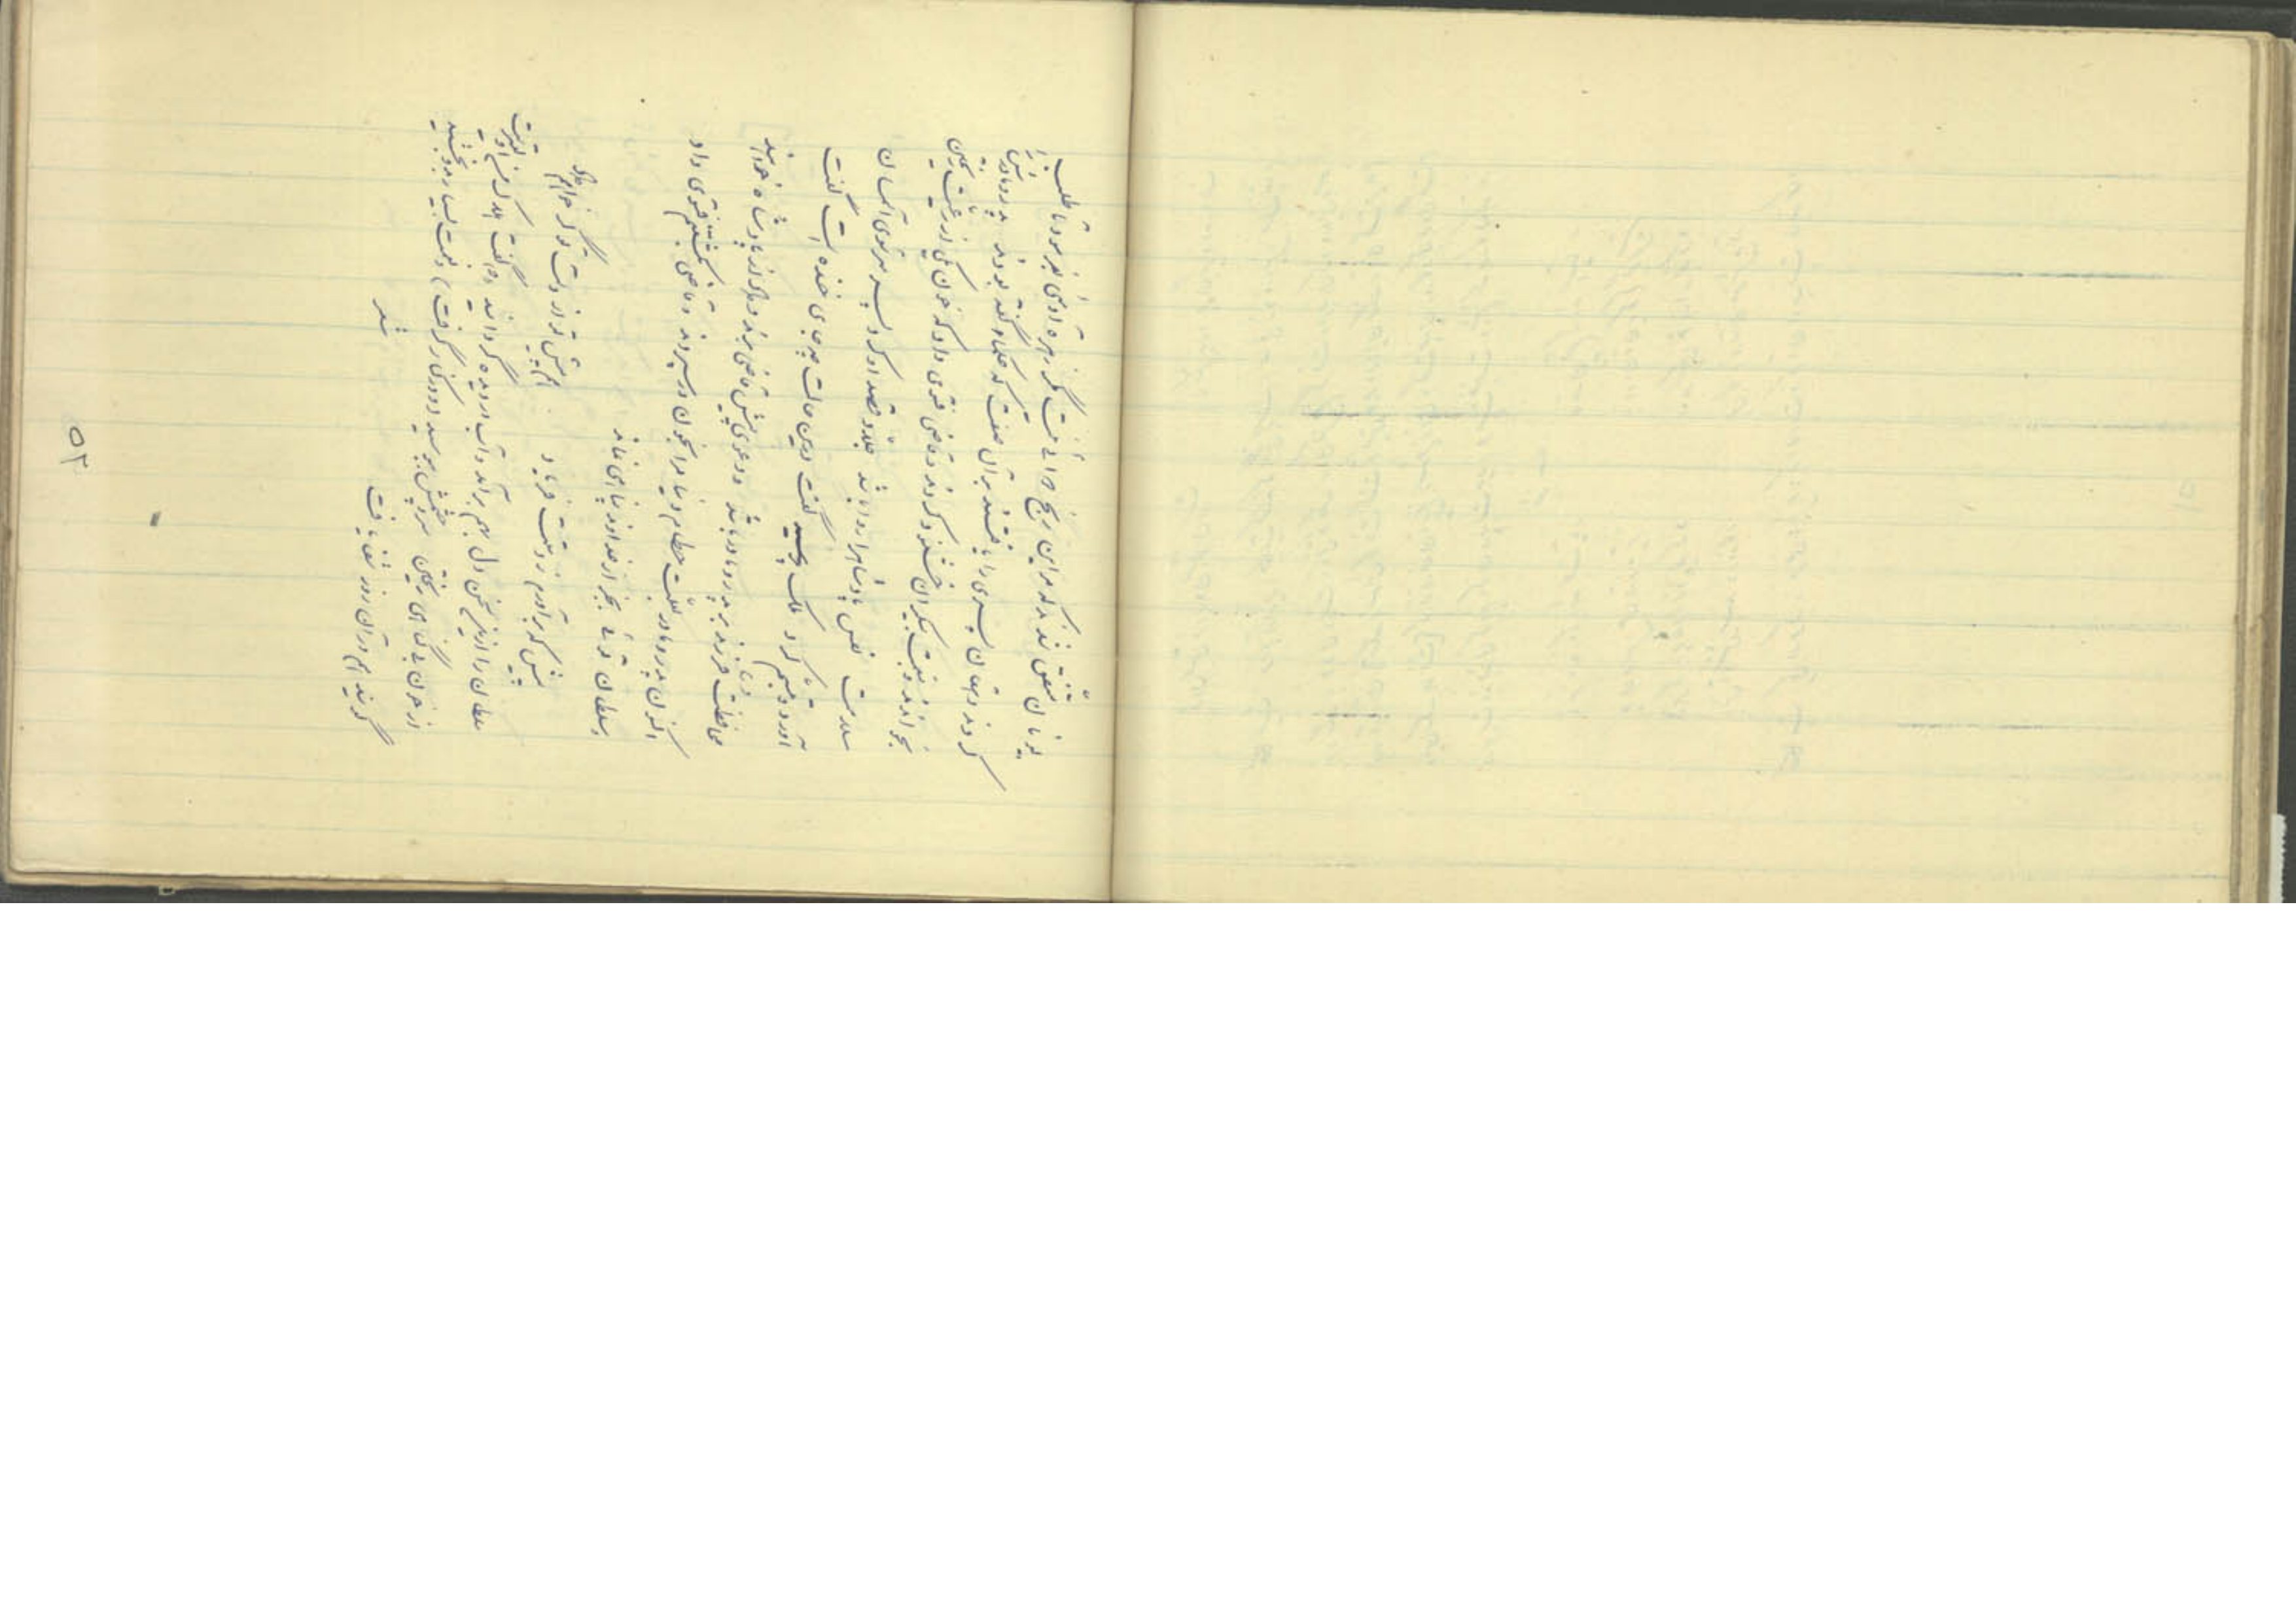 یونان متفق شدند که مر این رنج را دوائی نیست مگر زهره آدمی بفرمود تا طلب
کردند دهقان پسری را یافتند بر آن صفت که حکما گفته بودند پدر و مادرش را
بخواندند و بنعمت بیکران خشنود کردند و قاضی فتوی داد که خون یکی از رعیت ریختن
سلامت نفس پادشاه را روا باشد جلاد قصد او کرد پسر سر سوی آسمان
آورد و تبسم کرد ملک پرسید گفت در این حالت چه جای خنده است گفت
ناز فرزند بر پدر و مادر باشد و دعوی پیش قاضی برند و داد از پادشاه خواهند
اکنون پدر و مادر بعلت حطام دنیا مرا بخون در سپردند و قاضی بکشتنم فتوی داد
سلطان
بجز خداوند پناهی نماند
پیش که بر آورم ز دستت فریاد
هم پیش تو از دست تو گر خواهم داد
سلطان را از این سخن دل بهم بر آمد و آب در دیده گردانید و گفت هلاک من اولیتر است
از خون بی گناهی ریختن سر و چشمش ببوسید و در کنار گرفت و نعمت بسیار ببخشید
گویند هم در آن روز شفا یافت
شد
۵۲